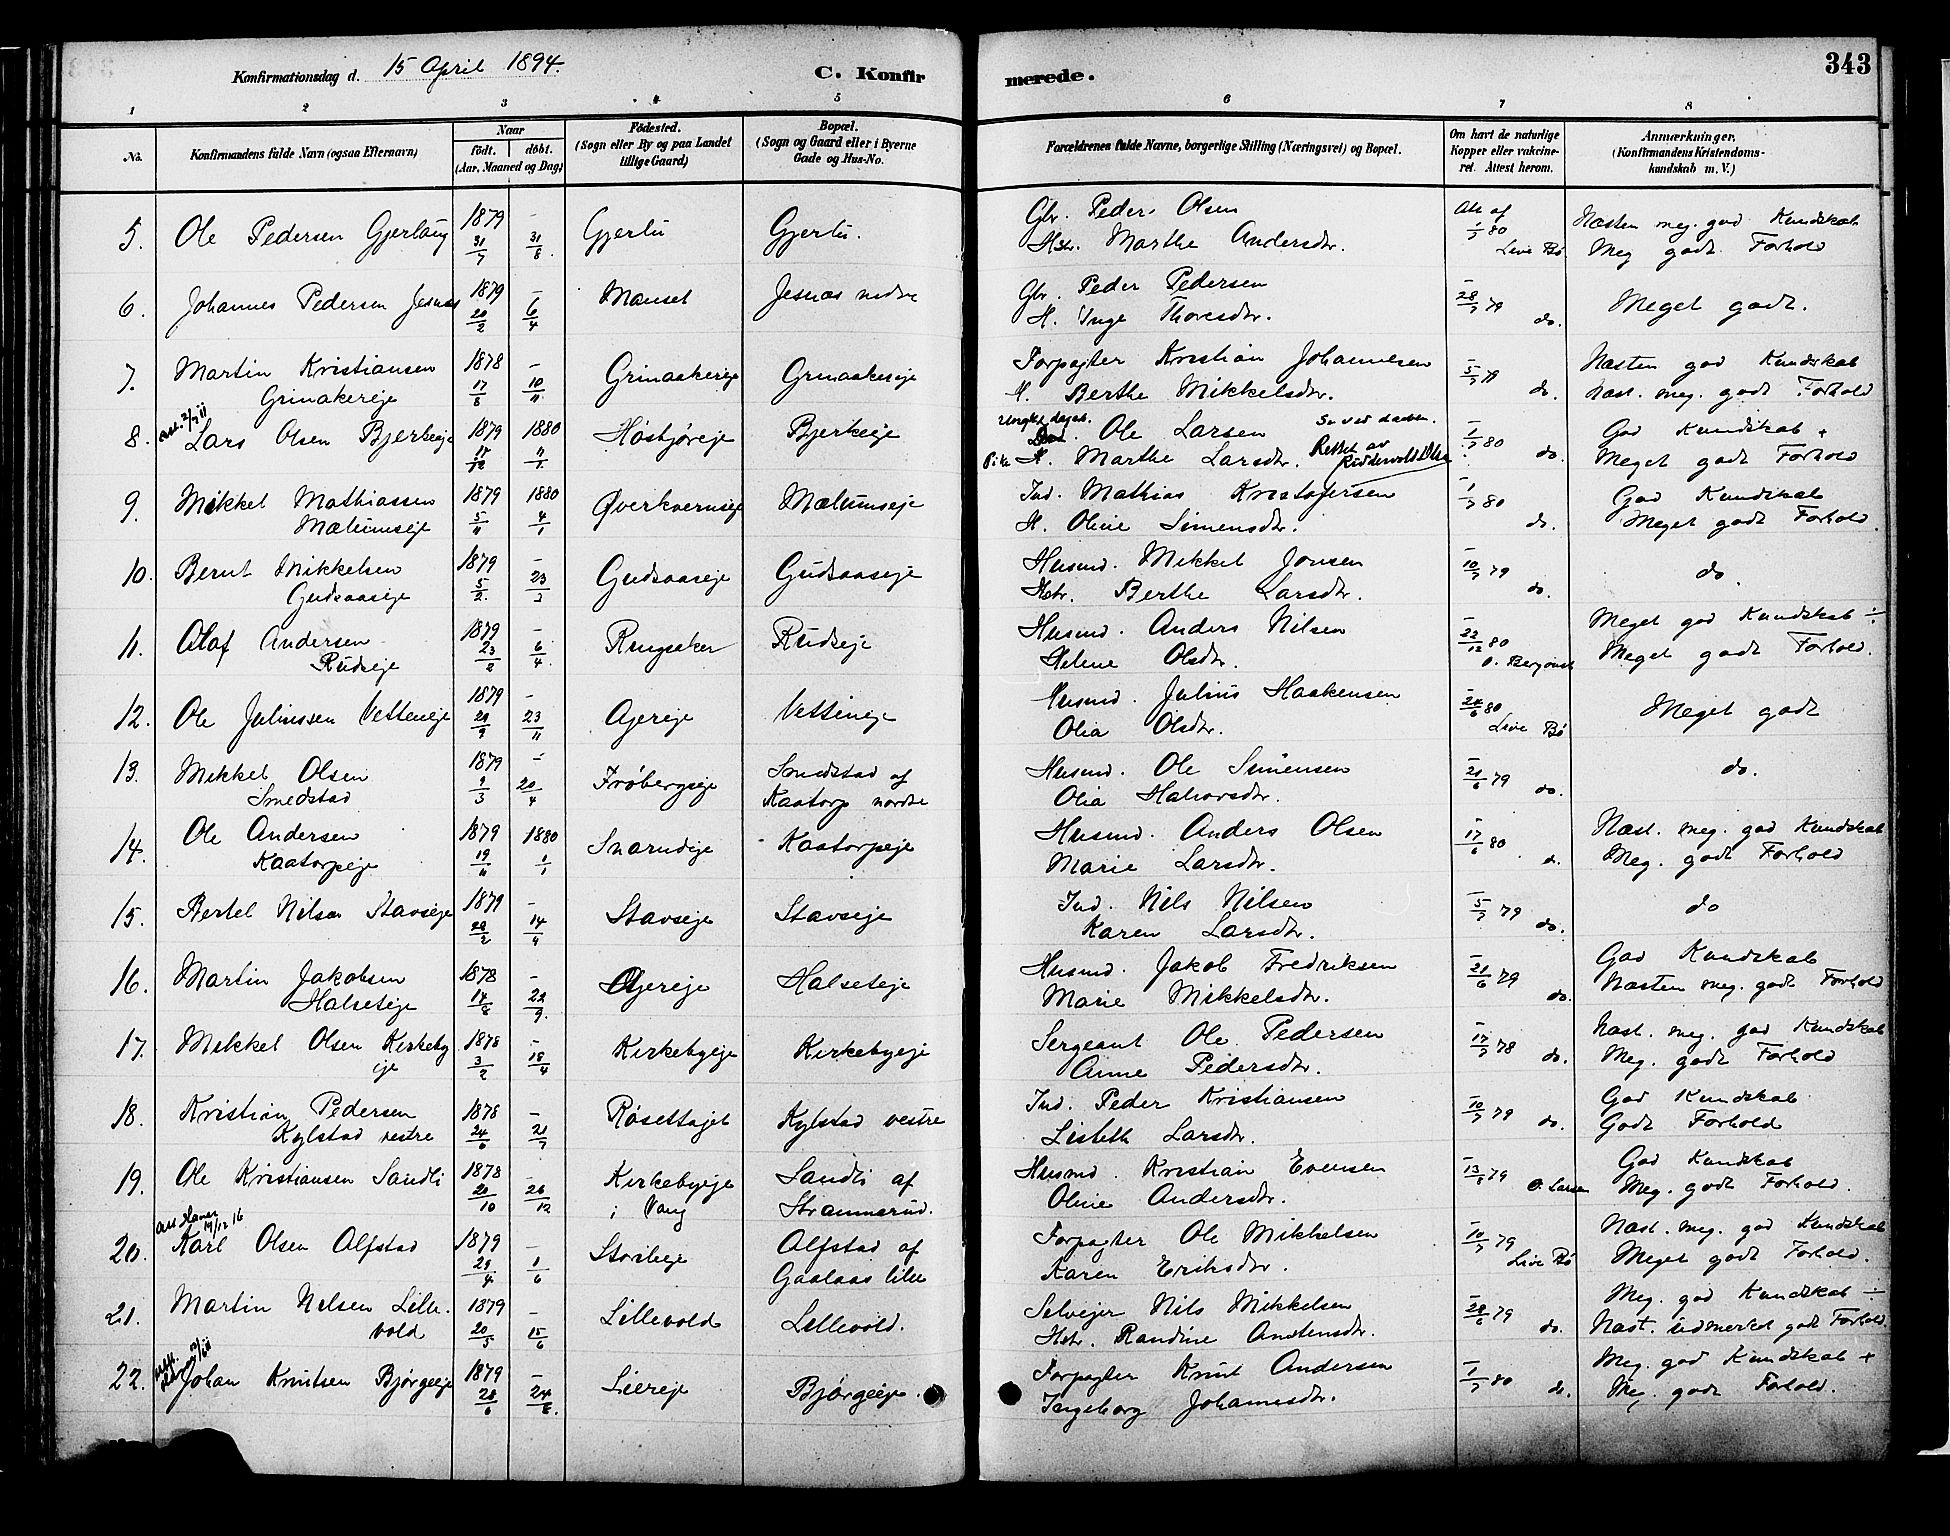 Konfirmationsdag d. 15 April 1894.
C. Konfir
merede.
343
1 2 3 4 5 6 7 8
No.
Konfirmandens fulde Navn (ogsaa Efternavn)
Naar
födt. döbt.
(Aar, Maaned og Dag)
Födested.
(Sogn eller By og paa Landet
tillige Gaard)
Bopæl.
(Sogn og Gaard eller i Byerne
Gade og Hus-No.
Forældrenes fulde Navne, borgerlige Stilling (Næringsvei) og Bopæl.
Om havt de naturlige
Kopper eller vakcine-
ret. Attest herom.
Anmærkninger,
(Konfirmandens Kristendoms-
kundskab m. V.)
5. Ole Pedersen Gjerlaug 1879 31/7 – 31/8 Gjerlu Gjerlu. Gbr. Peder Olsen
Hstr. Marthe Andersdtr. Att. af 1/7 80 Live Bø Næsten meg. god Kundskab
Meg godt Forhold
6. Johannes Pedersen Jesnæs 1879 20/2 – 6/4 Manset Jesnæs nedre Gbr. Peder Pedersen
H. Inge Thoresdtr. 28/7 79 do. Meget godt.
7. Martin Kristiansen 1878 17/8 – 10/11 Grinaakereje Grinaakereje Forpagter Kristian Johannesen
Grinakereje H. Berthe Mikkelsdtr. 5/7 79 do. Næsten god Kundskab
Næst. meg. godt Forhold
8. Lars Olsen Bjerkeeje 1879 17/12 1880 11/1 Høsbjøreje Bjerkeeje Ole Larsen Se ved daaben.
Pike Marthe Larsdtr. Rettet av Ridderwold Olsen 1/7 80 do. God Kundskab +
Meget godt Forhold
9. Mikkel Mathiassen 1879 5/11 1880 4/1 Øverkvernseje Mælumseje Ind. Mathias Kristofersen
Mælumseje H. Oline Simensdtr. 1/7 80 do. God Kundskab
Meget godt Forhold.
10. Bernt Mikkelsen 1879 5/2. – 23/3 Gudsaaseje Gudsaaseje Husmd. Mikkel Jonsen
Gudsaaseje Hstr. Berthe Larsdtr. 10/7 79 do. do.
11. Olaf Andersen 1879 23/2 – 6/4. Ringsaker Rudseje Husmd. Anders Nilsen
Rudseje Helene Olsdtr. 22/12 80 Meget god Kundskab ÷
Meget godt Forhold.
12. Ole Juliussen Vetteneje 1879 29/9 – 23/11 Ajereje Vetteneje Husmd. Julius Haakensen
Olia Olsdtr. 24/6 80 Live Bø Meget godt
13. Mikkel Olsen 1879 9/3 – 20/4 Frøbergseje Smedstad af
Smedstad Kaatorp nordre Husmd. Ole Simensen
Olia Halvorsdtr. 21/6 79 do. do.
14. Ole Andersen 1879 19/11 1880 1/1 Snarudeje Kaatorpeje Husmd. Anders Olsen
Kaatorpeje Marie Larsdtr. 17/6 80 d. Næst. meg. god Kundskab
Meg. godt Forhold
15. Bertel Nilsen Stavseje 1879 28/2 – 14/4 Stavseje Stavseje Ind. Nils Nilsen
Karen Larsdtr. 5/7 79 do. do
16. Martin Jakobsen 1878 14/8 – 22/9. Ajereje Halseteje Husmd. Jakob Fredriksen
Halseteje Marie Mikkelsdtr. 21/6 79 do. God Kundskab
Næsten meg. godt Forhold
17. Mikkel Olsen Kirkeby 1878 3/2 – 18/4 Kirkebyeje Kirkebyeje Sergeant Ole Pedersen
eje Anne Pedersdtr. 17/7 78 do. Næst. meg. god Kundskab
Meg. godt Forhold
18. Kristian Pedersen 1878 24/6 – 21/7 Røsettajet Kylstad vestre Ind. Peder Kristiansen
Kylstad vestre Lisbeth Larsdtr. 10/7 79 do. God Kundskab
Godt Forhold
19. Ole Kristiansen Sandli 1878 20/10 – 26/12 Kirkebyeje
i Vang Sandli af
Strammerud. Husmd. Kristian Evensen
Oline Andersdtr. 13/8 79 O. Larsen God Kundskab
Meg. godt Forhold.
19/12 16
20. Karl Olsen Alfstad 1879 29/4 – 1/6 Storiheje Alfstad af
Gaalaas lille Forpagter Ole Mikkelsen
Karen Eriksdtr. 10/7 79 Live Bø Næst. meg. god Kundskab
Meget godt Forhold.
21. Martin Nilsen Lille- 1879 20/5 – 15/6 Lillevold Lillevold. Selvejer Nils Mikkelsen
vold Hstr. Randine Amtensdtr. 28/6 79 do. Meg. god Kundskab ÷
Næst. udmerket godt Forhold.
22. Johan Knutsen Bjørgeeje 1879 28/6 – 24/8. Liereje Bjørgeeje. Forpagter Knut Andersen
Ingeborg Johannesdtr. 1/7 80 do. Meg. god Kundskab +
Meg. godt Forhold.